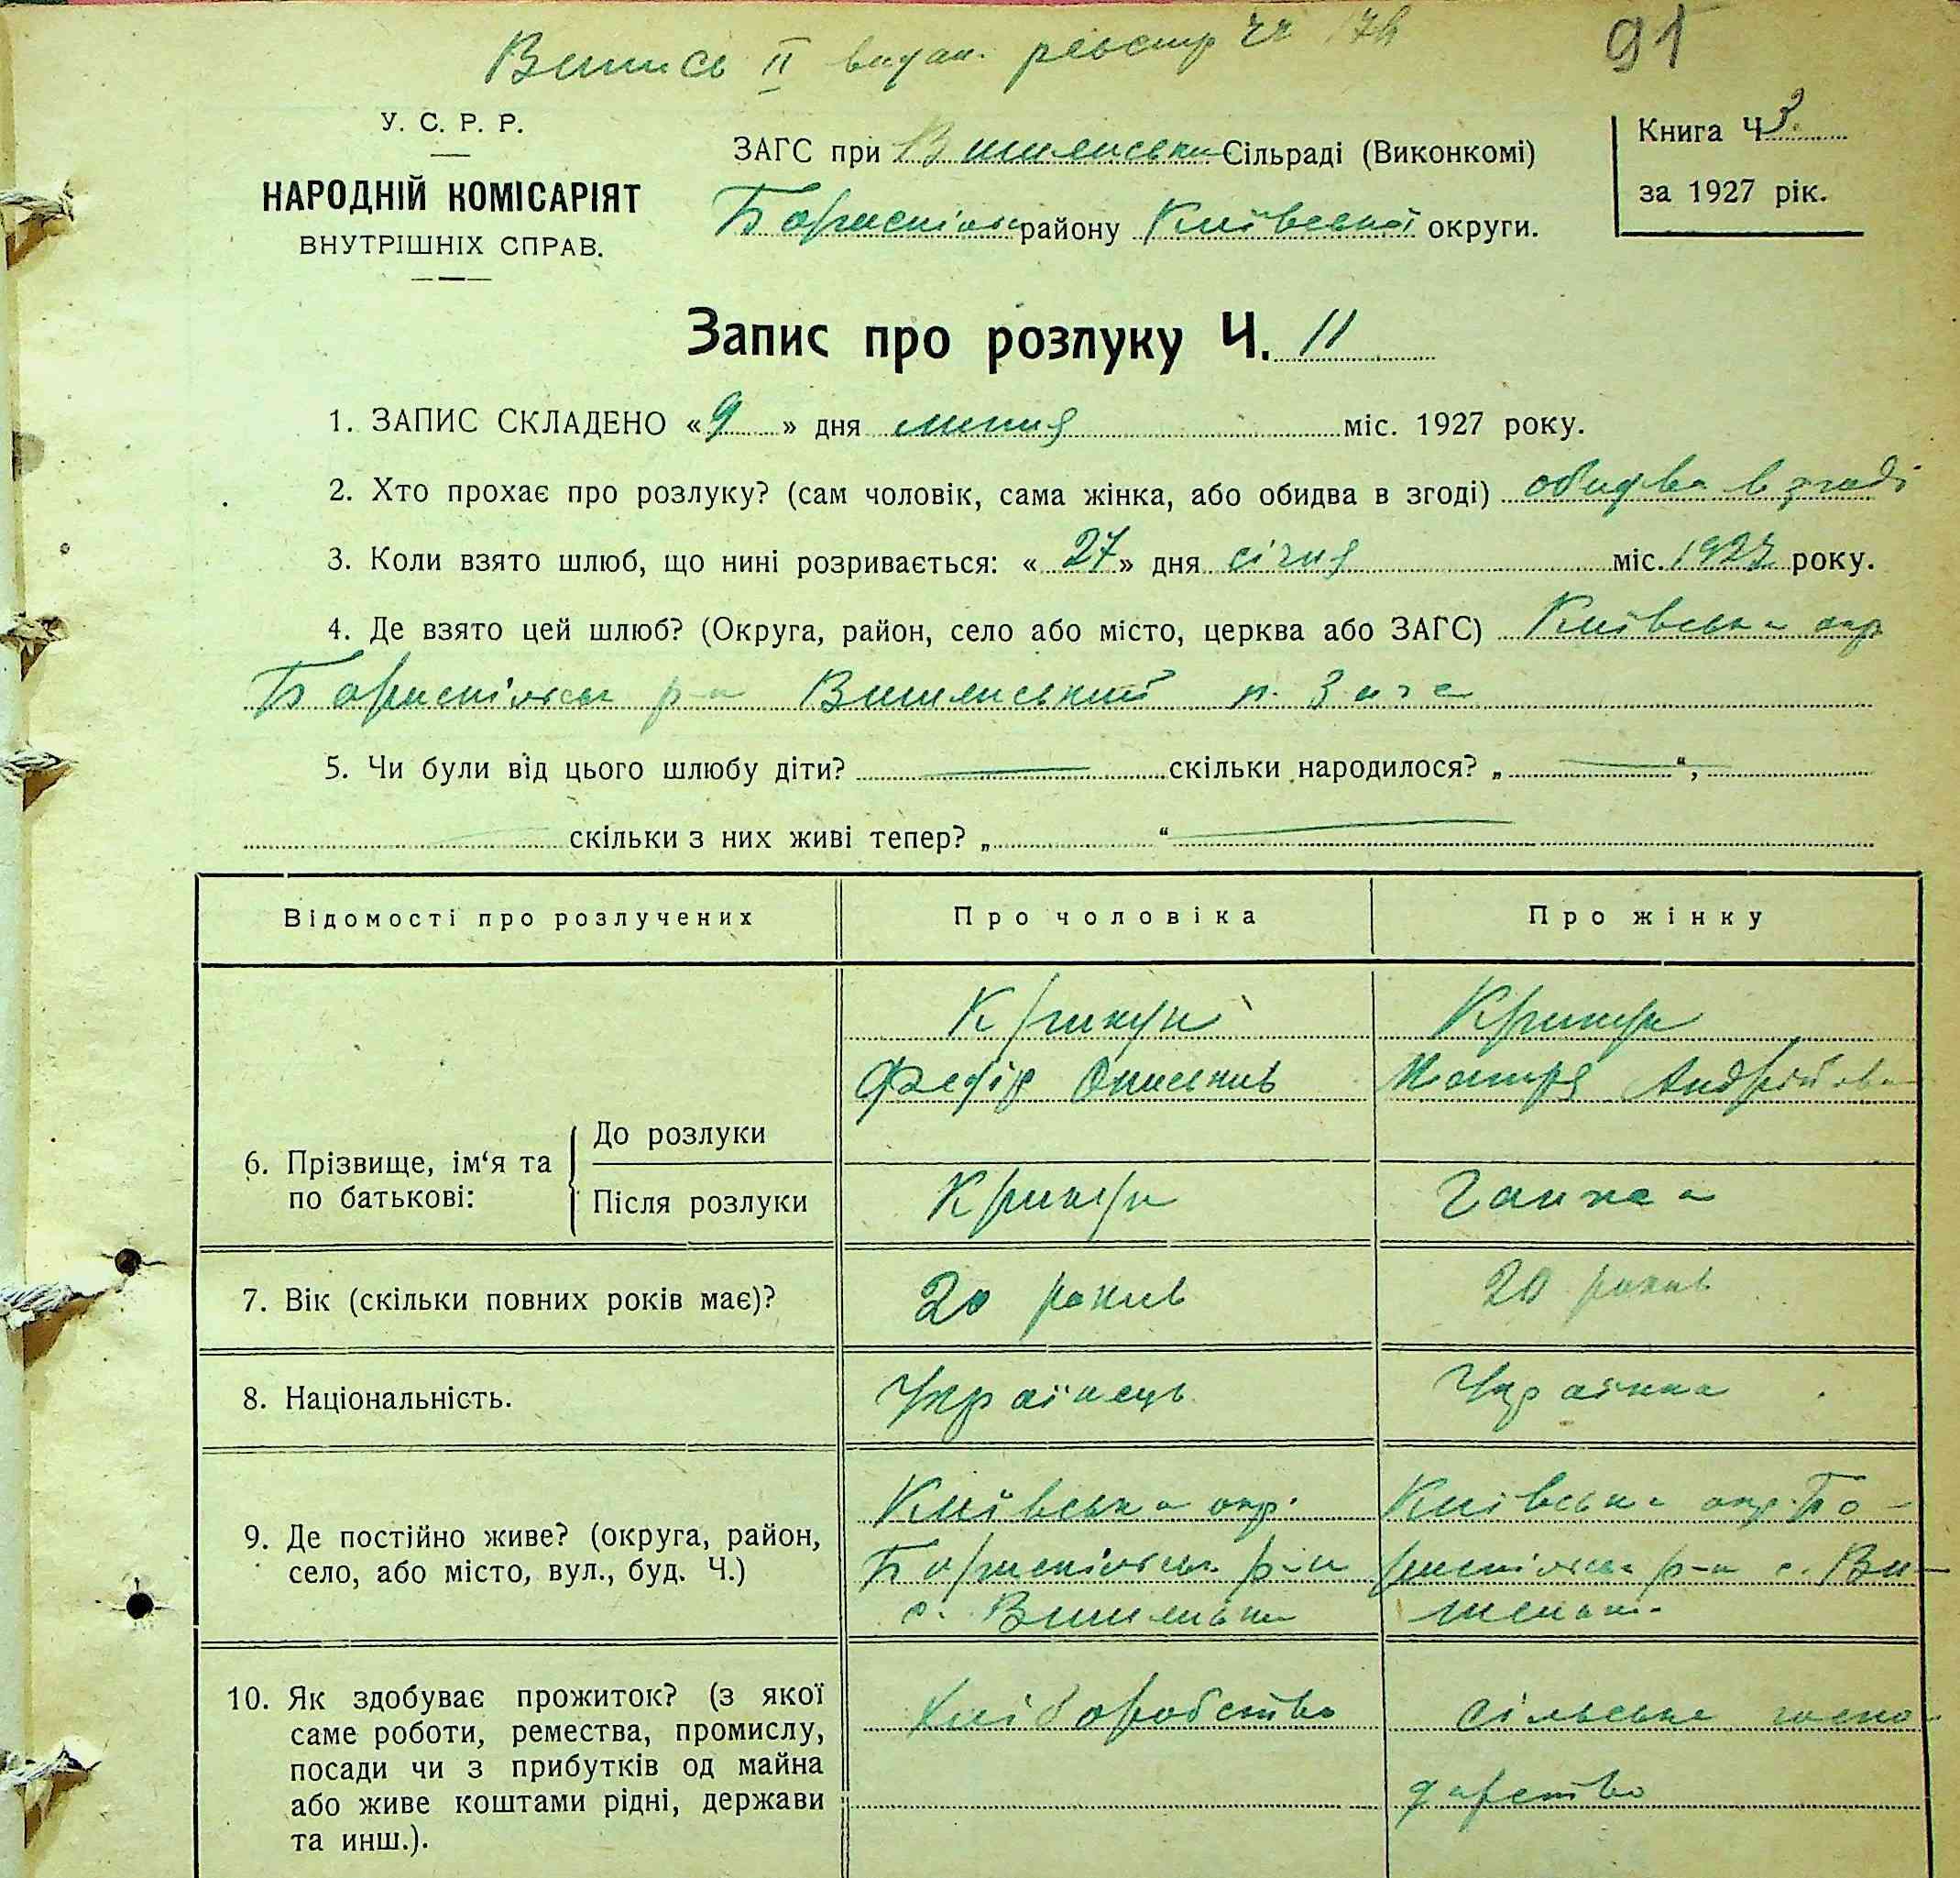 Випись II видан. реєстр
91
У. С. Р. Р.
НАРОДНІЙ КОМІСАРІЯТ
ВНУТРІШНІХ СПРАВ.
ЗАГС при Вишеньськи Сільраді (Виконкомі)
Бориспільс району Київської округи.
Книга Ч 3.
за 1927 рік.
Запис про розлуку Ч. 11
1. ЗАПИС СКЛАДЕНО «9» дня липня міс. 1927 року.
2. Хто прохає про розлуку? (сам чоловік, сама жінка, або обидва в згоді) обидва в згоді
3. Коли взято шлюб, що нині розривається: «27» дня січня міс. 1927 року.
4. Де взято цей шлюб? (Округа, район, село або місто, церква або ЗАГС) Київська окр
Бориспільськ р-н Вишенський п. Загс
5. Чи були від цього шлюбу діти? — скільки народилося? „ — “,
— скільки з них живі тепер? „ “ —
Відомості про розлучених Про чоловіка Про жінку
6. Прізвище, ім‘я та по батькові:
До розлуки
Крикун
Федір Ониськів
Крикун
Мотря Андрійова
Після розлуки
Крикун
7. Вік (скільки повних років має)? 20 років 20 років
8. Національність. Українець Українка
9. Де постійно живе? (округа, район,
село, або місто, вул., буд. Ч.)
Київська окр.
Бориспільськ р-н
с. Вишеньки
Київська окр. Бо-
риспільськ р-н с. Ви-
шеньки
10. Як здобуває прожиток? (з якої
саме роботи, ремества, промислу,
посади чи з прибутків од майна
або живе коштами рідні, держави
та инш.).
Хліборобство
сільське госпо-
дарство